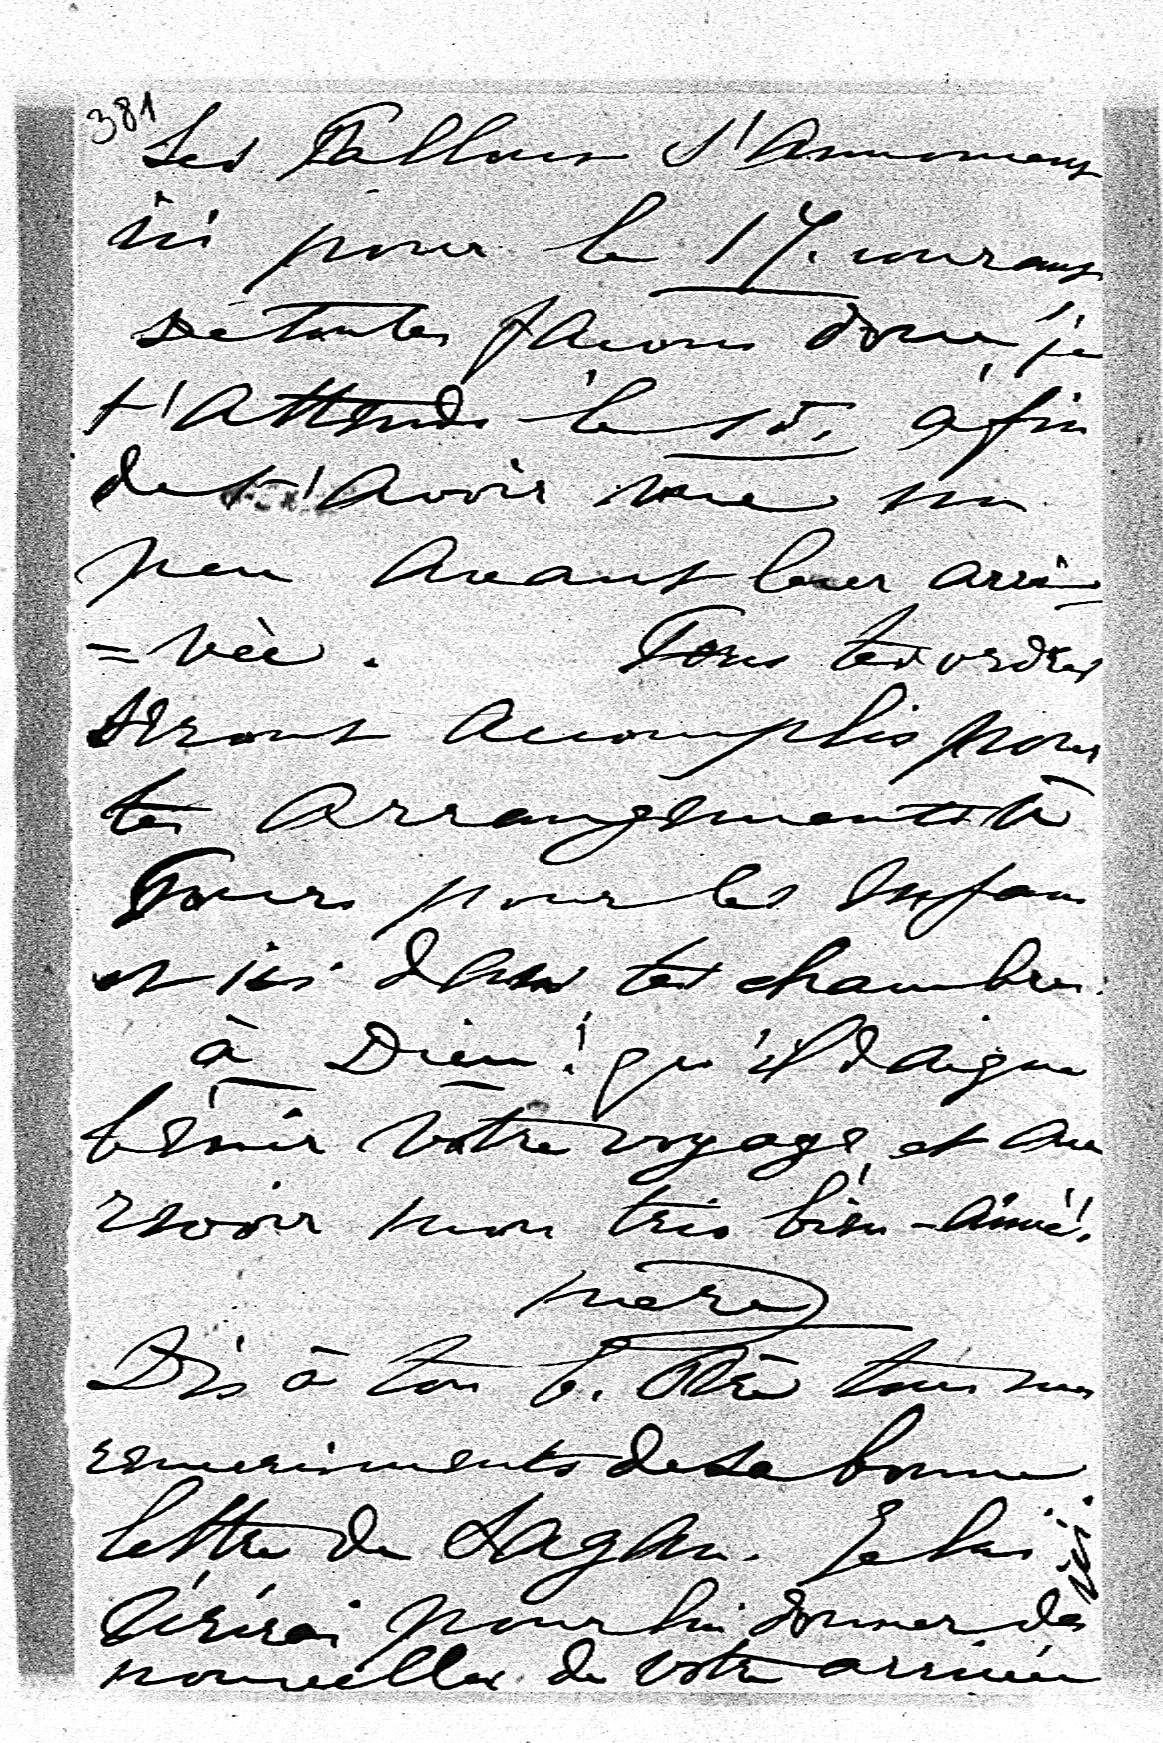 381
Les Falloux s'annoncent
ici pour le 17. courant
de toutes façons donc je
t'attends le 15, afin
de t'avoir vue un
peu avant leur arri
= vée. Tous tes ordres
seront accomplis pour
tes arrangements à
Tours pour les enfans
et ici dans tes chambres.
à Dieu! qu'il daigne
bénir votre voyage et au
revoir mon très bien-aimé!
mère
Dis à ton b. Père tous mes
remerciments de sa bonne
lettre de Sagan. Je lui
écrirai pour lui donner des
nouvelles de votre arrivée
ici.